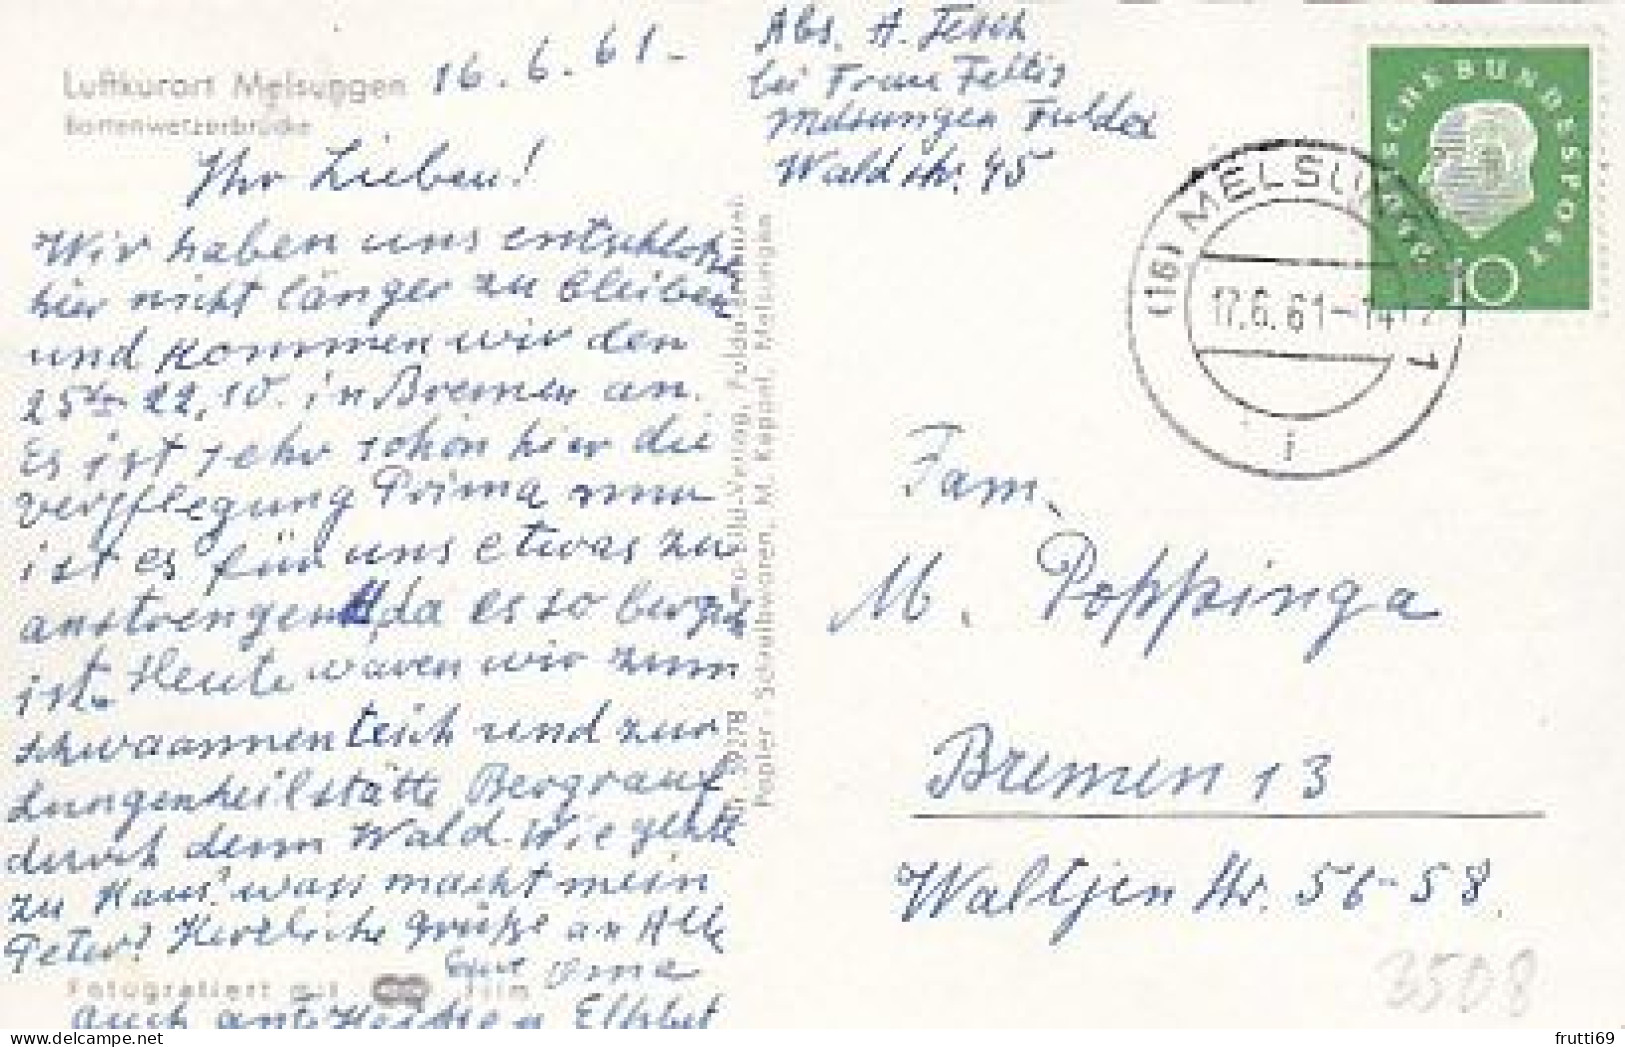 Luftkurort Melsungen
Bartenwetzerbrücke
16.6.61-
Ihr Lieben!
Wir haben uns entschloßen
hier nicht länger zu bleiben
und kommen wir den
22,10. in Bremen an.
Es ist sehr schön hier die
verpflegung Prima nur
ist es für uns etwas zu
anstrengend, da es so bergig
ist. Heute waren wir zum
schwaannenteich und zur
Lungenheilstätte Bergrauf
durch denn Wald. Wie gehtt
zu Haus? wass macht mein
Peter? Herzliche grüße an Alle
Eure Oma
auch
Fotografiert mit Film
Papier- Schreibwaren, M. Keppel, Melsungen
Abs. H. Tesch
bei Frau Feltis
Melsungen Fulda
Wald str. 45
DEUTSCHE BUNDESPOST
10
(16) MELSUN
17.6.61-14
1
i
Fam.
M. Poppinga
Bremen 13
Waltjen Str. 56-58.
3508
frutti69